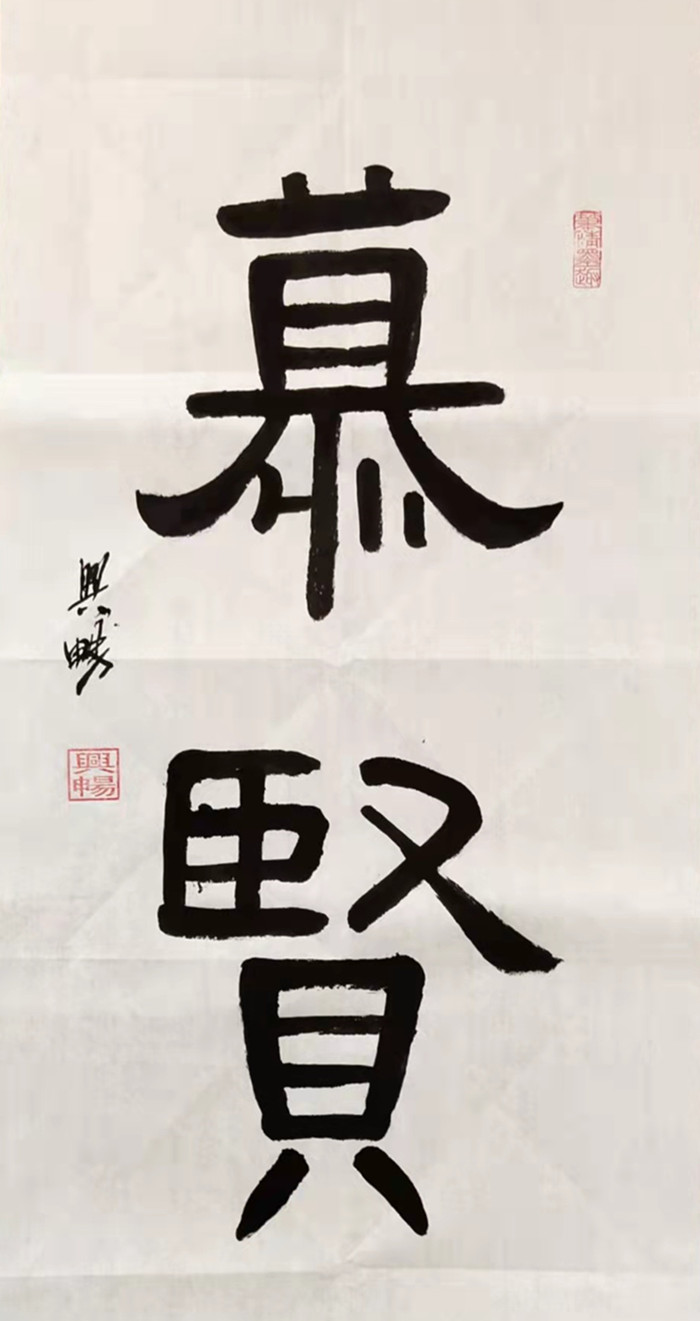 慕賢
興暢
興暢